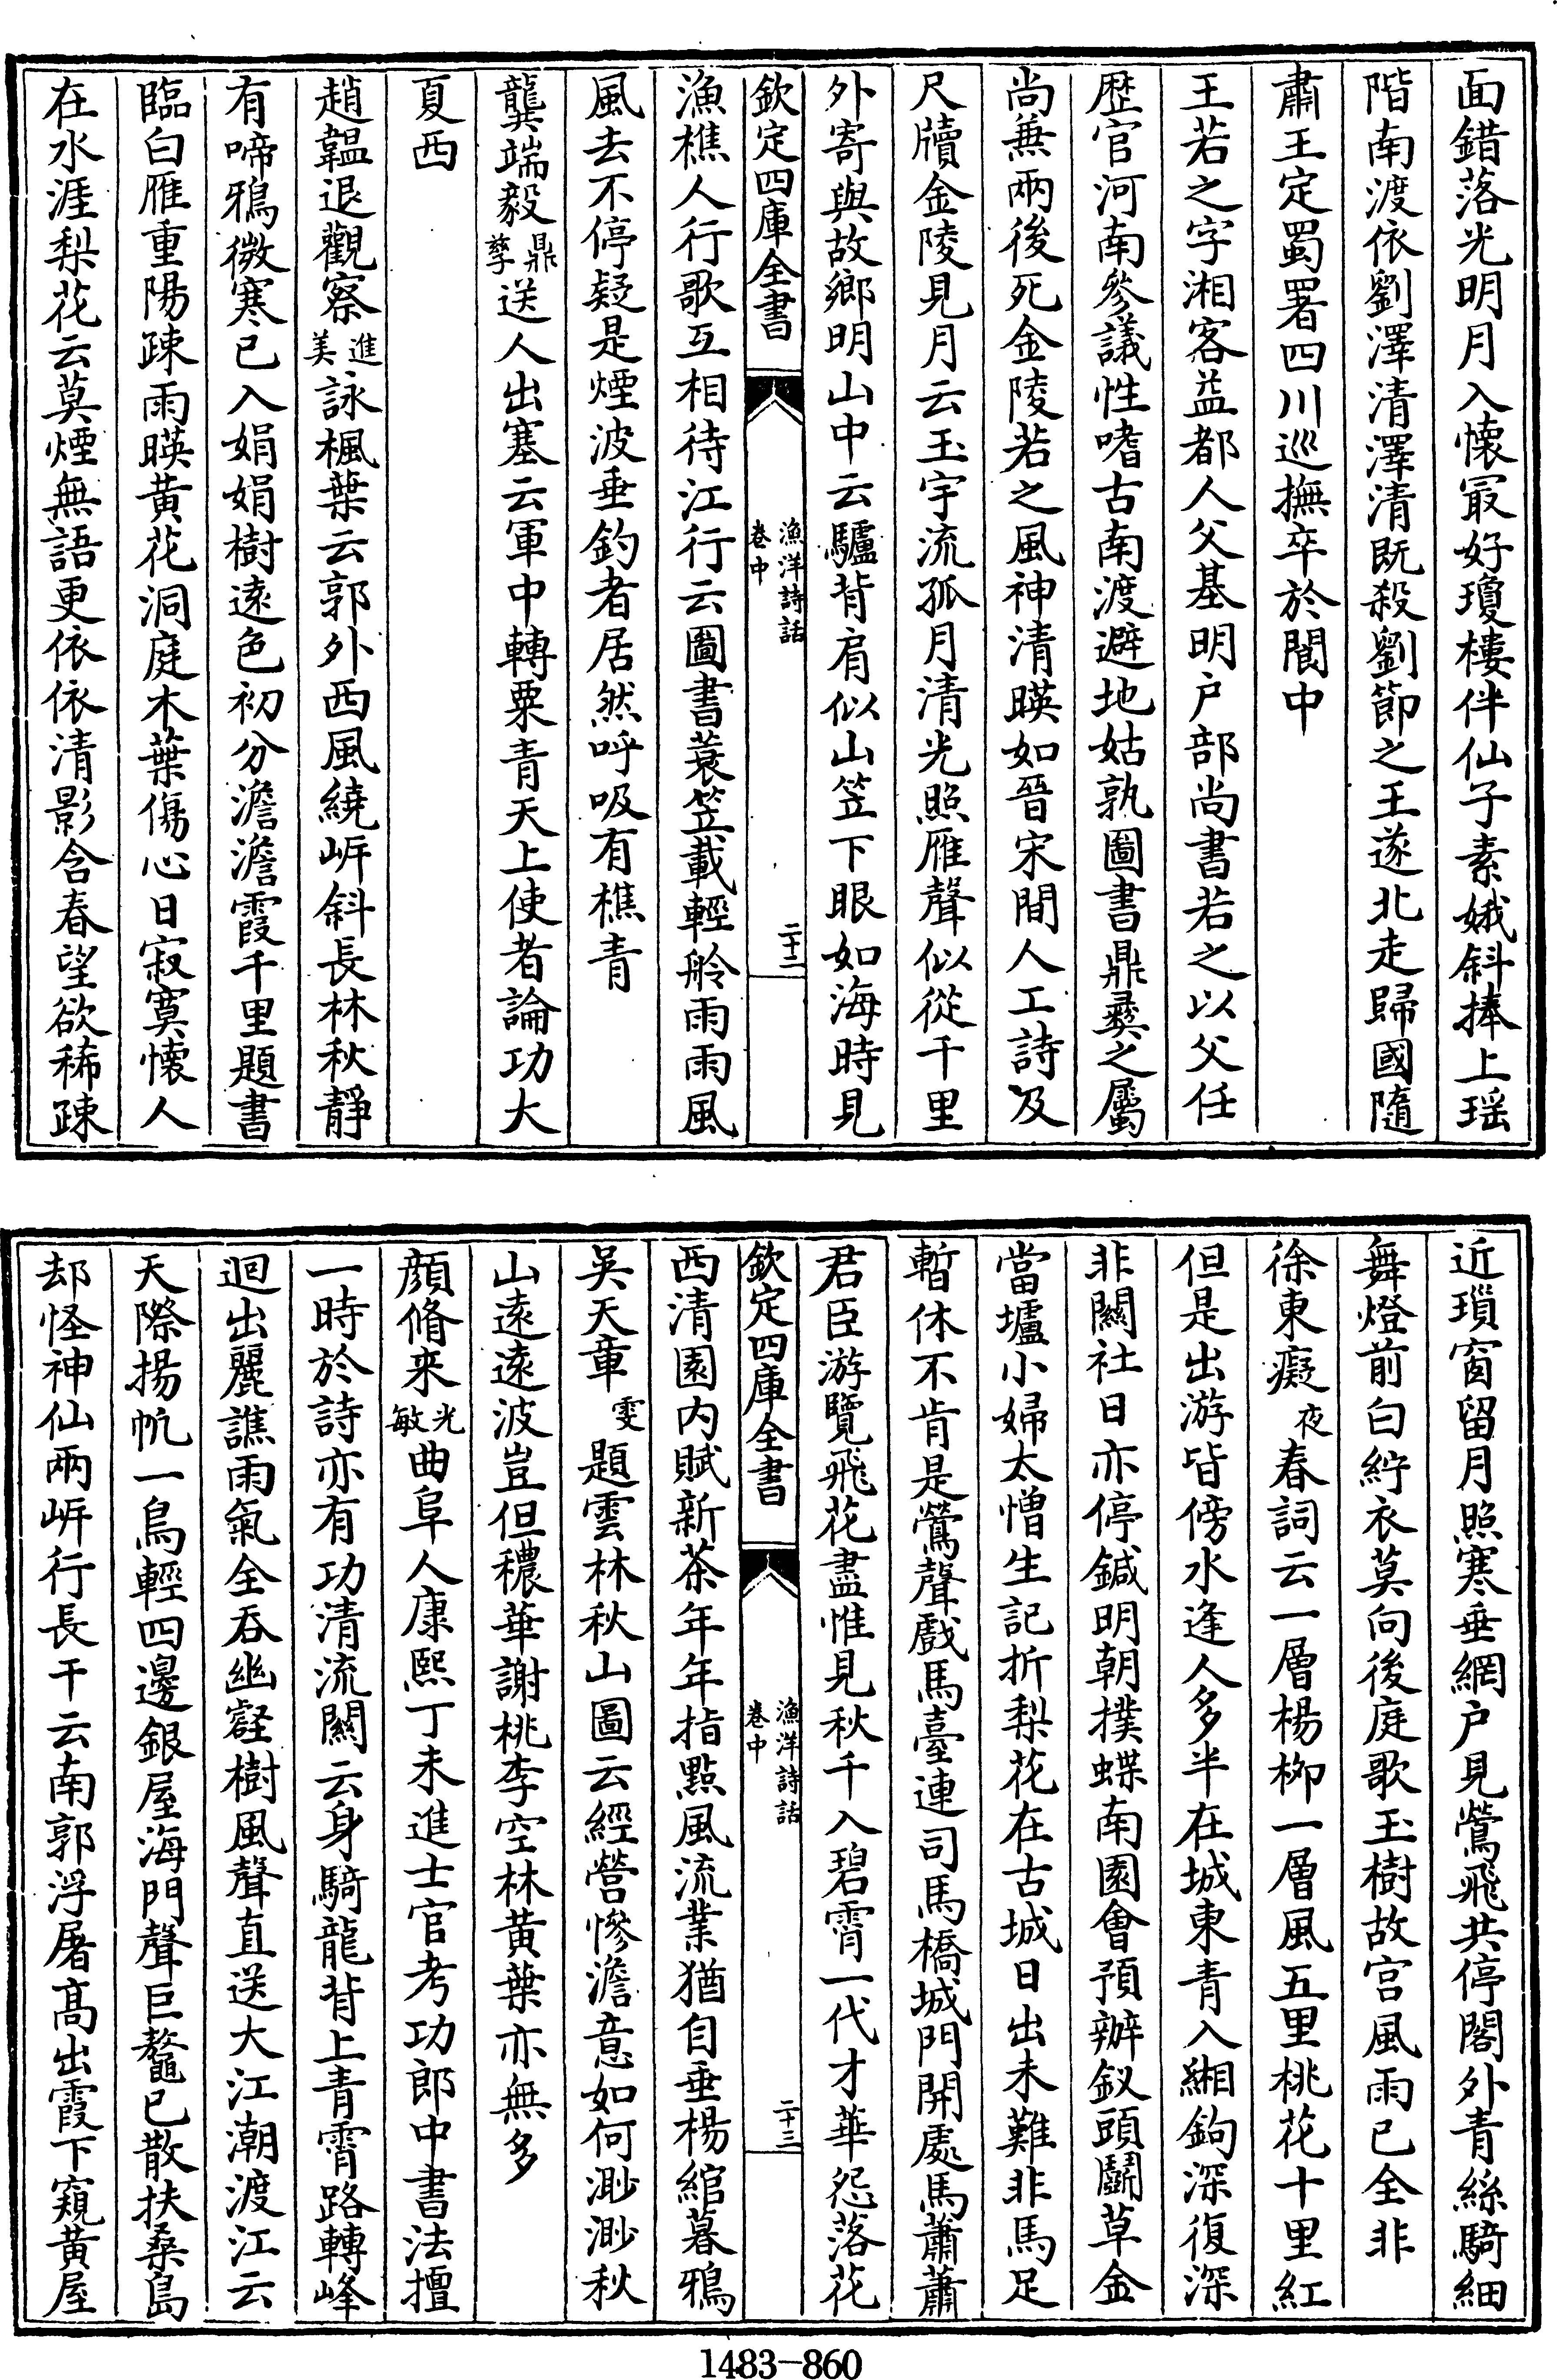 面錯落光明月入懐冣好瓊樓伴仙子素娥斜捧上瑶
階南渡依劉澤清澤清既殺劉節之王遂北走歸國隨
肅王定蜀署四川巡撫卒於閬中
王若之字湘客益都人父基明户部尚書若之以父任
歴官河南參議性嗜古南渡避地姑孰圖書鼎彝之屬
尚兼兩後死金陵若之風神清暎如晉宋間人工詩及
尺牘金陵見月云玉宇流孤月清光照雁聲似從千里
外寄與故鄉明山中云驢背肩似山笠下眼如海時見
欽定四庫全書 漁洋詩話 卷中 二十二
漁樵人行歌互相待江行云圖書蓑笠載輕舲雨雨風
風去不停疑是煙波垂釣者居然呼吸有樵青
龔端毅鼎孳送人出塞云軍中轉粟青天上使者論功大
夏西
趙韞退觀察進美詠楓葉云郭外西風繞岍斜長林秋靜
有啼鴉微寒已入娟娟樹遠色初分澹澹霞千里題書
臨白雁重陽疎雨暎黄花洞庭木葉傷心日寂寞懐人
在水涯梨花云莫煙無語更依依清影含春望欲稀疎
近瑣窗留月照寒垂網户見鶯飛共停閣外青絲騎細
舞燈前白紵衣莫向後庭歌玉樹故宫風雨已全非
徐東癡夜春詞云一層楊栁一層風五里桃花十里紅
但是出游皆傍水逢人多半在城東青入緗鉤深復深
非關社日亦停鍼明朝撲蝶南園會預辦釵頭鬬草金
當壚小婦太憎生記折梨花在古城日出未難非馬足
暫休不肯是鶯聲戲馬臺連司馬橋城門開處馬蕭蕭
君臣游覽飛花盡惟見秋千入碧霄一代才華怨落花
欽定四庫全書 漁洋詩話 卷中 二十三
西清園内賦新茶年年指㸃風流業猶自垂楊綰暮鴉
吳天章雯題雲林秋山圖云經營慘澹意如何渺渺秋
山遠遠波豈但穠華謝桃李空林黄葉亦無多
顔脩来光敏曲阜人康熙丁未進士官考功郎中書法擅
一時於詩亦有功清流關云身騎龍背上青霄路轉峰
迴出麗譙雨氣全吞幽壑樹風聲直送大江潮渡江云
天際揚㠶一鳥輕四邊銀屋海門聲巨鼇已散扶桑島
却怪神仙兩岍行長干云南郭浮屠髙出霞下窺黄屋
1483-860